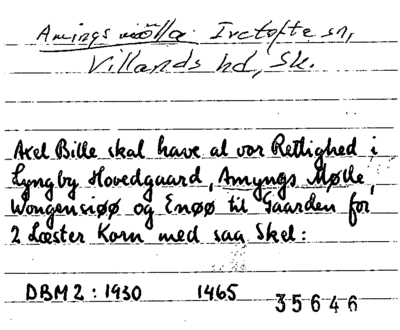 Amingsmölla. Ivetofte sn,
Villands hd, Sk.
Axel Bille skal have al vor Rettighed i
Lyngby Hovedgaard, Amyngs Mølle,
Wongensiøø og Enøø til Gaarden for
2 Læster Korn med saa Skel:
DBM2: 1930 1465 35646